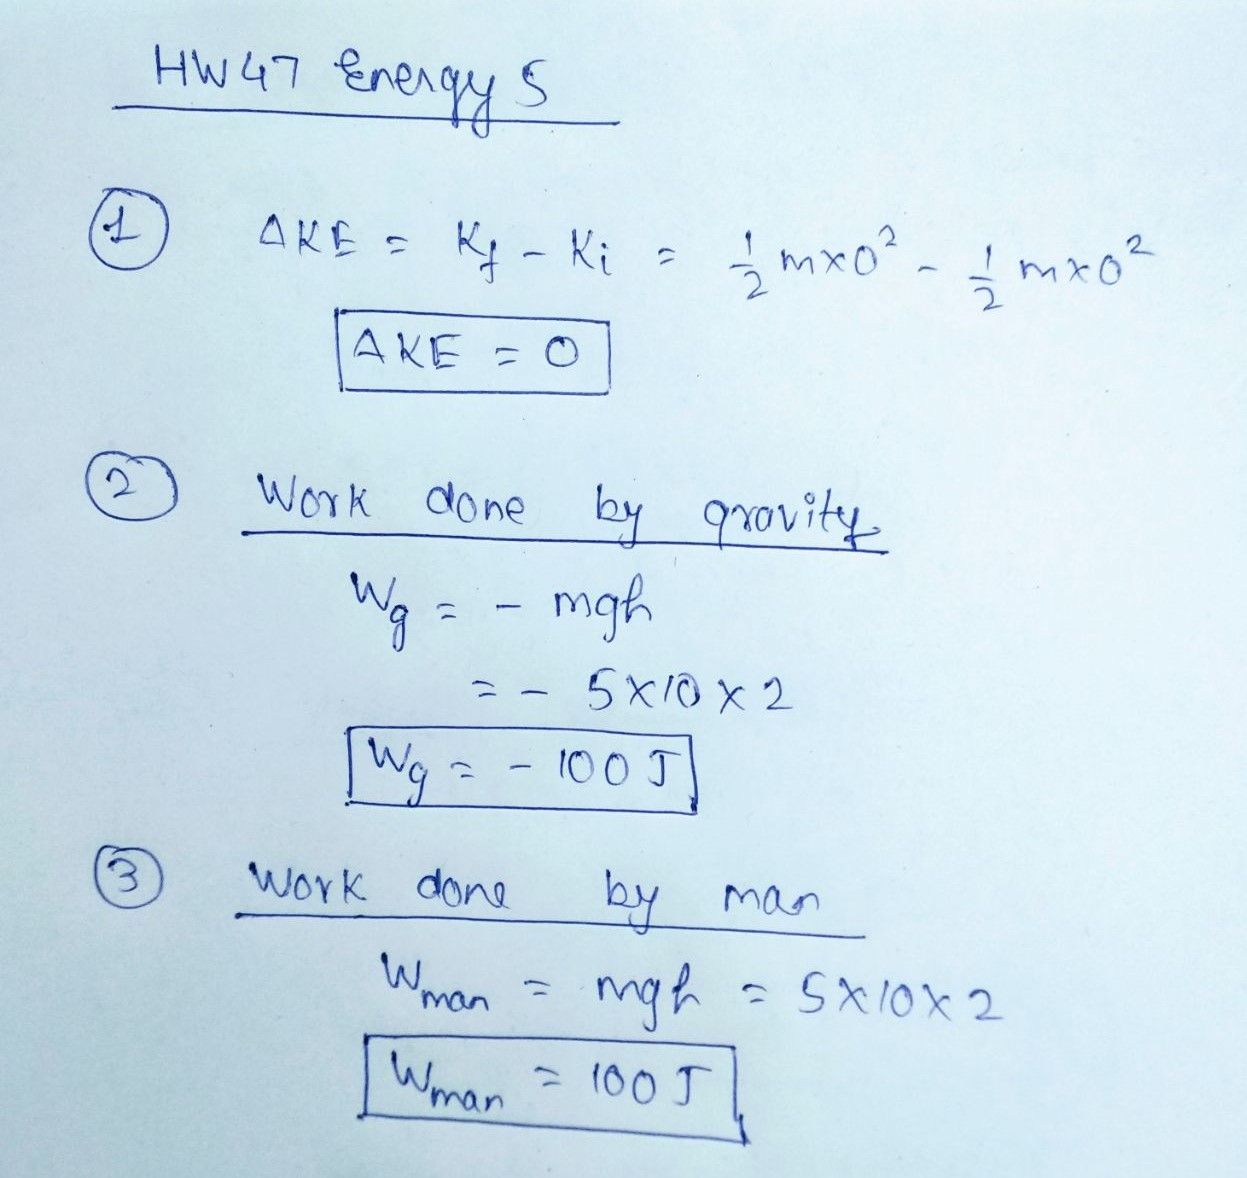 HW47 Energy 5
① ΔKE = Kf - Ki = 1/2 m×0² - 1/2 m×0²
ΔKE = 0
② Work done by gravity
Wg = - mgh
= - 5×10×2
Wg = - 100 J
③ Work done by man
Wman = mgh = 5×10×2
Wman = 100 J